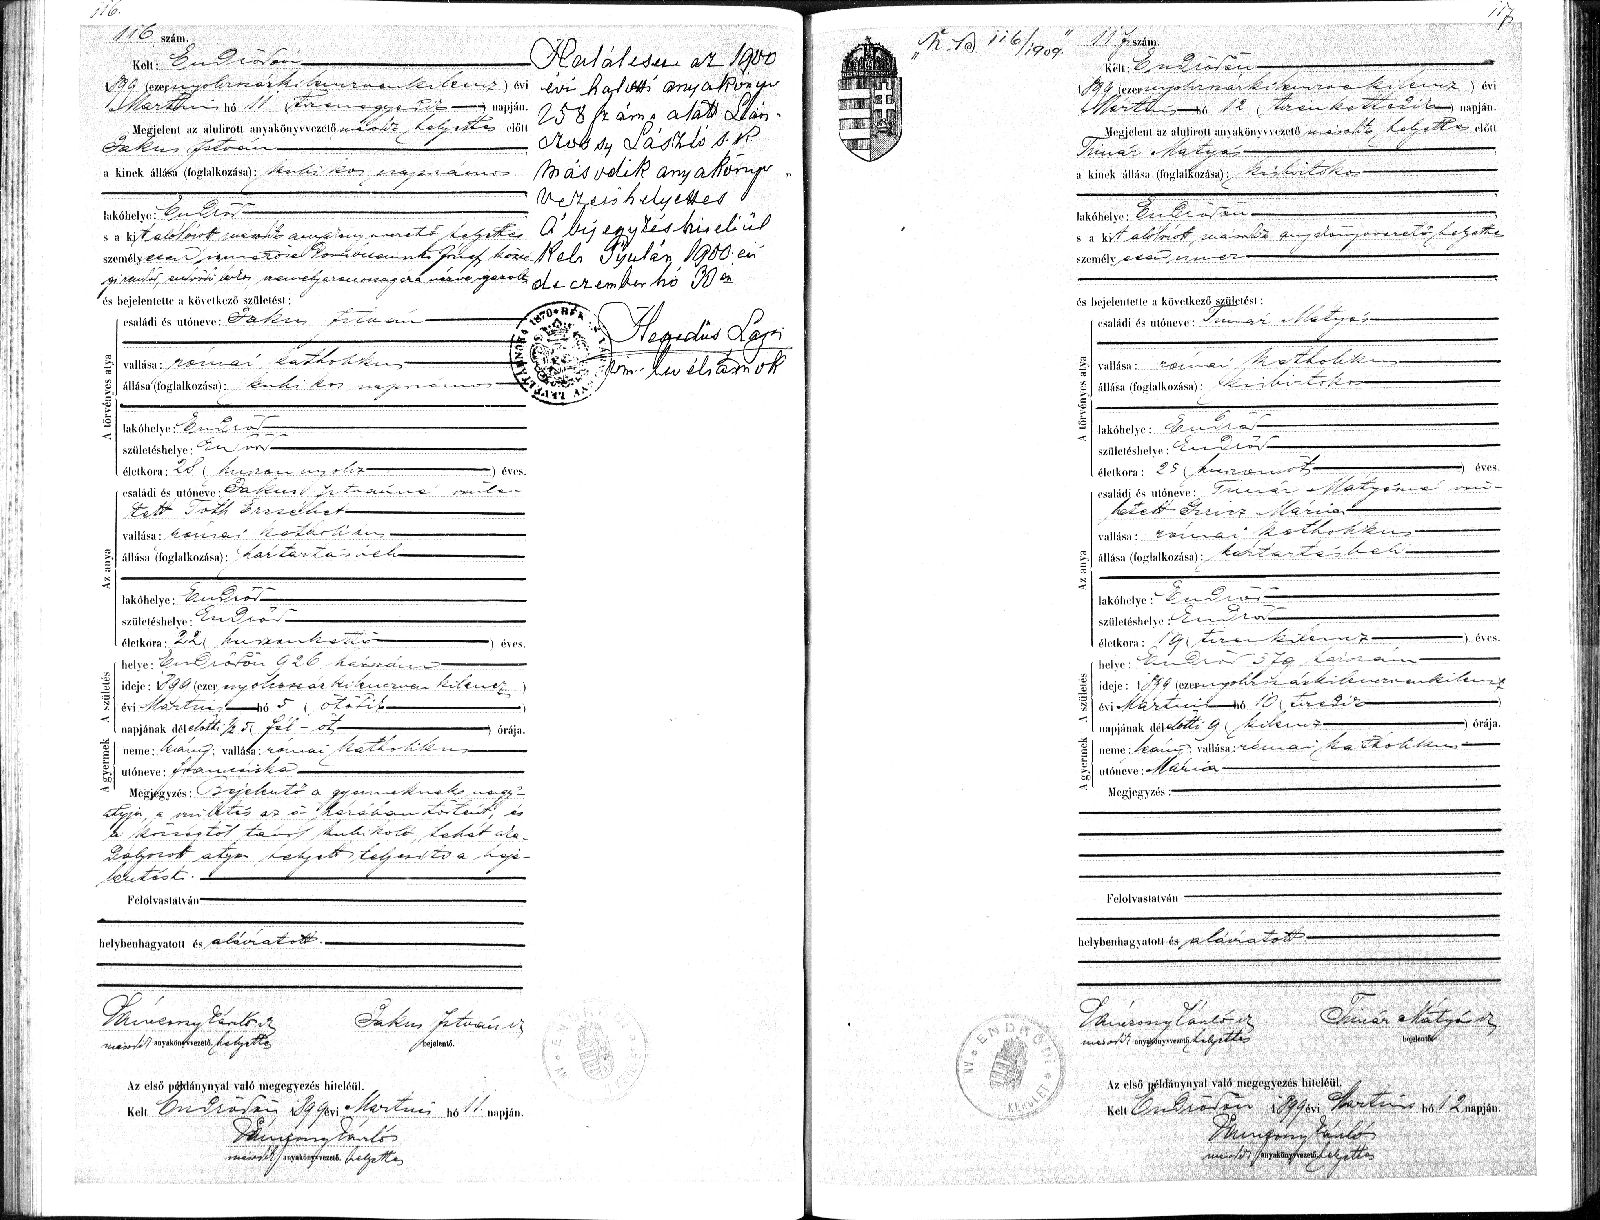 116.
116 szám.
Kelt: Endrődön
899 (ezernyolcszázkilencvenkilencz) évi
Martius hó 11 (tizenegyedik) napján.
Megjelent az alulirott anyakönyvvezető másodk helyettes előtt
Jakus István
a kinek állása (foglalkozása): kubikos napszámos
lakóhelye: Endrőd
s a kit alólirott második anyakönyvvezető helyettes
személyesen
és bejelentette a következő születést:
A törvényes atya
családi és utóneve: Jakus István
vallása: római katholikus
állása (foglalkozása): kubikos napszámos
lakóhelye: Endrőd
születéshelye: Endrőd
életkora: 28 (huszonnyolcz) éves.
Az anya
családi és utóneve: Jakus Istvánné szüle-
tett Tóth Erzsébet
vallása: római katholikus
állása (foglalkozása): háztartásbeli
lakóhelye: Endrőd
születéshelye: Endrőd
életkora: 22 (huszonkettő) éves.
A születés
helye: Endrődön 926 házszám
ideje: 1899 (ezernyolcszázkilencvenkilencz)
évi Martius hó 5 (ötödik)
napjának délelőtti ½5 (fél-öt) órája.
A gyermek
neme: leány; vallása: római katholikus
utóneve: Franciska
Megjegyzés: Bejelentő a gyermeknek nagy-
atyja, a születés az ő házában történt, és
a községtől távol kubikoló, tehát aka-
dályozott atya helyett teljesíti a beje-
lentést.
Felolvastatván
helybenhagyatott és aláiratott.
másodk anyakönyvvezető helyettes
Jakus István
bejelentő.
Az első példánynyal való megegyezés hiteléül.
Kelt Endrődön 1899 évi Martius hó 11 napján.
másodk anyakönyvvezető helyettes
Halálesete az 1900
évi halotti anyakönyv
258 szám alatt
László s. k.
második anyakönyv-
vezetőhelyettes
A bejegyzés hiteléül
Kelt Gyulán 1900. évi
deczember hó 30 án
Hegedüs Lajos
levéltárnok
117.
„N. b. 116/1909."
117 szám.
Kelt: Endrődön
899 (ezernyolcszázkilencvenkilencz) évi
Martius hó 12 (tizenkettedik) napján.
Megjelent az alulirott anyakönyvvezető másodk helyettes előtt
Timár Mátyás
a kinek állása (foglalkozása): kisbirtokos
lakóhelye: Endrődön
s a kit alólirott második anyakönyvvezető helyettes
személyesen ismer
és bejelentette a következő születést:
A törvényes atya
családi és utóneve: Timár Mátyás
vallása: római katholikus
állása (foglalkozása): kisbirtokos
lakóhelye: Endrőd
születéshelye: Endrőd
életkora: 25 (huszonöt) éves.
Az anya
családi és utóneve: Timár Mátyásné szü-
letett Mária
vallása: római katholikus
állása (foglalkozása): háztartásbeli
lakóhelye: Endrőd
születéshelye: Endrőd
életkora: 19 (tizenkilencz) éves.
A születés
helye: Endrőd 579 házszám
ideje: 1899 (ezernyolcszázkilencvenkilencz
évi Martius hó 10 (tizedik)
napjának délelőtti 9 (kilencz) órája.
A gyermek
neme: leány; vallása: római katholikus
utóneve: Mária
Megjegyzés:
Felolvastatván
helybenhagyatott és aláiratott
másodk anyakönyvvezető helyettes
Timár Mátyás
bejelentő.
Az első példánynyal való megegyezés hiteléül.
Kelt Endrődön 1899 évi Martius hó 12 napján.
másodk anyakönyvvezető helyettes